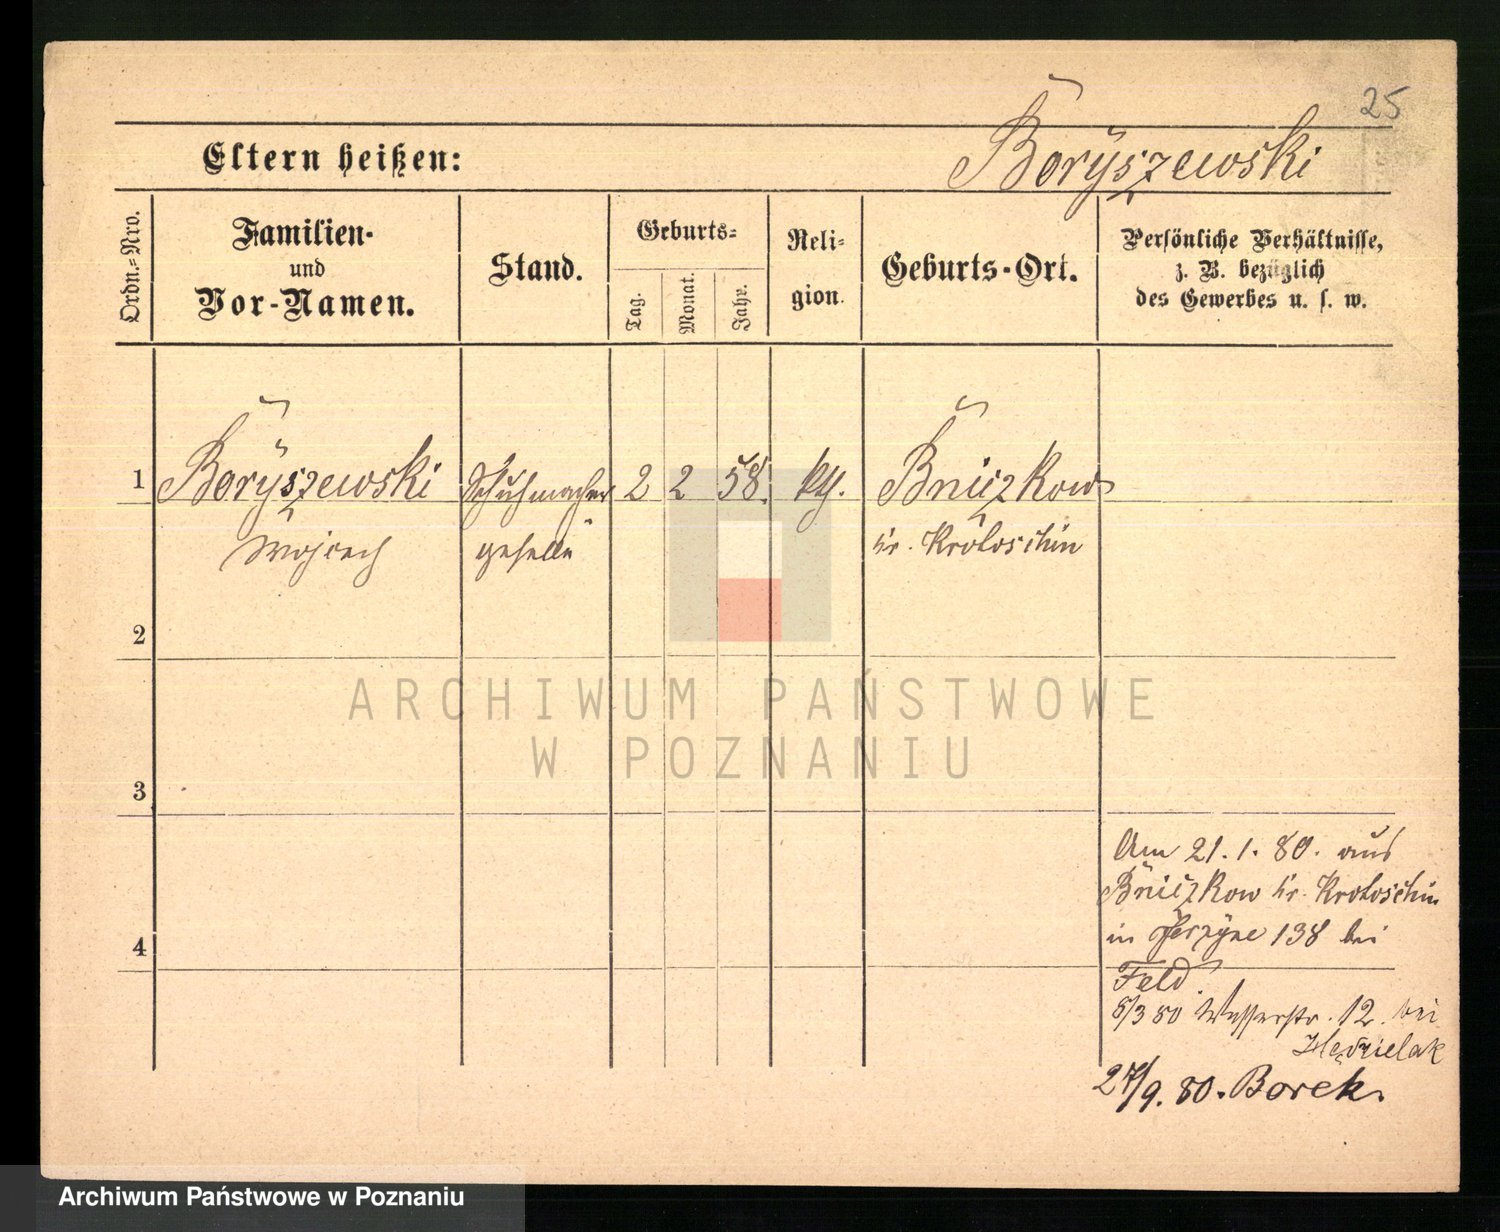 25
Eltern heißen:
Boryszewski
Ordn.-Nro.
Familien-
und
Vor-Namen.
Stand.
Geburts-
Tag.
Monat.
Jahr.
Reli-
gion.
Geburts-Ort.
Persönliche Verhältnisse,
z. B. bezüglich
des Gewerbes u. s. w.
1
Boryszewski
Schuhmacher
2
2
58.
kth.
Bruczkow
Wojcech
geselle
Kr. Krotoschin
2
ARCHIWUM PAŃSTWOWE
W POZNANIU
3
Am 21.1.80. aus
Bruczkow Kr. Krotoschin
in Jerzyce 138 bei
4
Feld.
5/3 80 Wasserstr. 12. bei
27/9. 80. Borek.
Archiwum Państwowe w Poznaniu